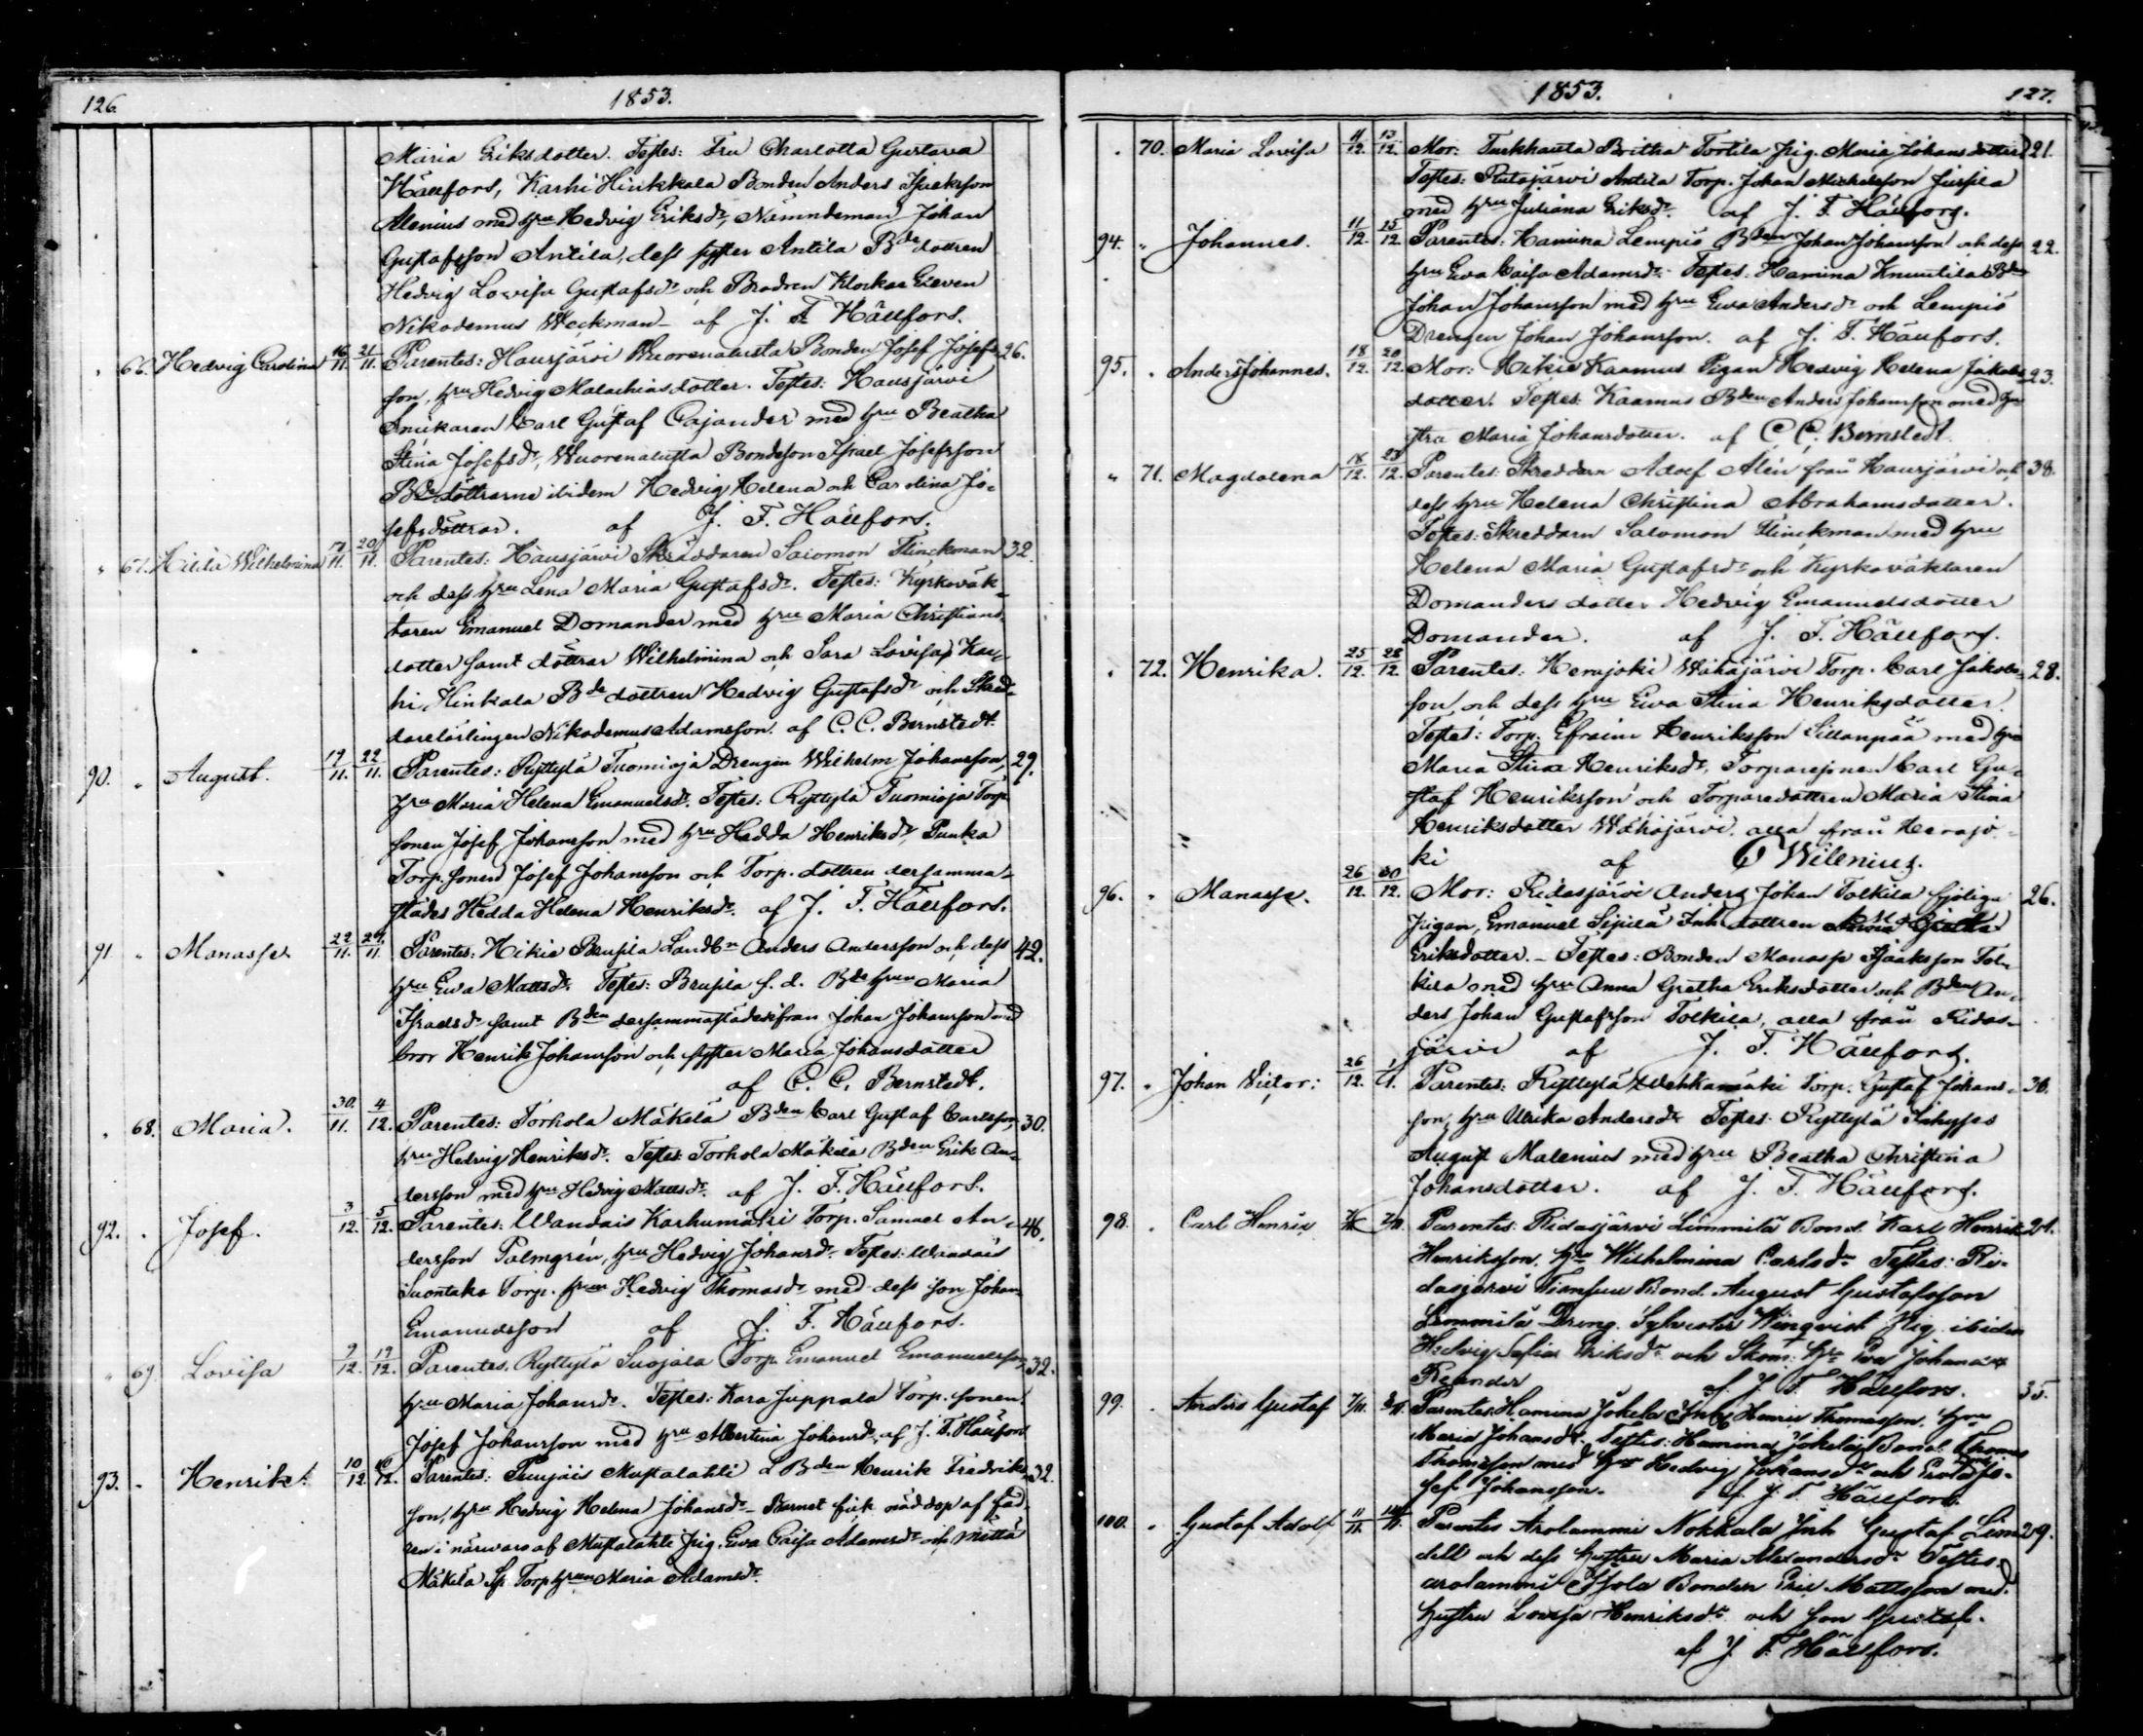 126.
1853.
Maria Eriksdotter. Testes: Fru Charlotta Gustava
Hällfors, Karhi Hinkkala Bonden Anders Isaksson
Alenius med hru Hedvig Eriksdr, Nämndeman Johan
Gustafsson Antila, dess syster Antila Bde dottren
Hedvig Lovisa Gustafsdr och Brodren Klockar Eleven
Nikodemus Weckman - af J. F. Hällfors.
66. Hedvig Carolina 16/11. 21/11. Parentes: Hausjärvi Wuorenalusta Bonden Josef Josefs- 26.
son, hru Hedvig Malachiasdotter. Testes: Hausjärvi
Snickaren Carl Gustaf Cajander med hru Beatha
Stina Josefsdr, Wuorenalusta Bondeson Israel Josefsson
Bde döttrarne ibidem Hedvig Helena och Carolina Jo-
sefsdöttrar. af J. F. Hällfors.
67. Hilda Wilhelmina 17/11. 20/11. Parentes: Hausjärvi Skräddaren Salomon Flinckman 32.
och dess hru Lena Maria Gustafsdr. Testes: Kyrkoväk-
taren Emanuel Domander med hru Maria Christians
dotter samt döttrar Wilhelmina och Sara Lovisa, Kar-
hi Hinkala Bde dottren Hedvig Gustafsdr och Skräd-
darelärlingen Nikodemus Adamsson. af C. C. Bernstedt.
90. " August. 19/11. 22/11. Parentes: Ryttylä Tuomioja Drengen Wilhelm Johansson, 29.
hru Maria Helena Emanuelsdr. Testes: Ryttylä Tuomioja Torp.
sonen Josef Johansson med hru Hedda Henriksdr, Punka
Torp. sonen Josef Johansson och Torp. dottren dersamma-
städes Hedda Helena Henriksdr. af J. F. Hällfors.
91. " Manasse 22/11. 27/11. Parentes: Hikiä Prusila Landbn Anders Andersson och dess 42.
hru Ewa Mattsdr. Testes: Prusila f. d. Bde hrun Maria
Israelsdr samt Bden dersammastädesifrån Johan Johansson med
bror Henrik Johansson och syster Maria Johansdotter
af C. C. Bernstedt.
" 68. Maria. 30/11. 4/12. Parentes: Torhola Mäkelä Bden Carl Gustaf Carlsson, 30.
hru Hedvig Henriksdr. Testes: Torhola Mäkelä Bden Erik An-
dersson med hru Hedvig Mattsdr. af J. F. Hällfors.
92. " Josef. 3/12. 5/12. Parentes: Wandais Karhumäki Torp. Samuel An- 46.
dersson Palmgrén, hru Hedvig Johansdr. Testes: Wandais
Suontaka Torp. hrun Hedvig Thomasdr med dess son Johan
Emanuelsson af J. F. Hällfors.
" 69. Lovisa 9/12. 12/12. Parentes. Ryttylä Suojala Torp. Emanuel Emanuelsson, 32.
hru Maria Johansdr. Testes: Kara Juppala Torp. sonen
Josef Johansson med hru Albertina Johansdr, af J. F. Hällfors
93. " Henrik. 10/12. 10/12. Parentes: Mustalahti L Bden Henrik Fredriks- 32.
son, hru Hedvig Helena Johansdr - Barnet fick nöddop af fad-
ren i närvaro af Mustalahti Pig. Ewa Caisa Adamsdr och
Mäkelä Torp hrun Maria Adamsdr.
1853.
127.
" 70. Maria Lovisa 11/12. 13/12. Mor: Turkhauta Britha Torkila Pig. Maria Johansdotter 21.
Testes: Rutajärvi Antila Torp. Johan Michelsson Jussila
med hru Juliana Eriksdr. af J. F. Hällfors.
94. " Johannes. 11/12. 15/12. Parentes: Hamina Lempis Bden Johan Johansson och dess 22.
hru Ewa Caisa Adamsdr. Testes: Hamina Knuutila Bden
Johan Johansson med hru Ewa Andersdr och Lempis
Drengen Johan Johansson. af J. F. Hällfors.
95. " Anders Johannes. 18/12. 20/12. Mor: Hikiä Kaamus Pigan Hedvig Helena Jakobs 23.
dotter. Testes: Kaamus Bden Anders Johansson med hu-
stru Maria Johansdotter. af C. C. Bernstedt.
" 71. Magdalena 18/12. 23/12. Parentes: Skreddarn Adolf Alén från Hausjärvi och 38.
dess hru Helena Christina Abrahamsdotter.
Testes: Skreddarn Salomon Flinckman med hru
Helena Maria Gustafsdr och Kyrkoväktaren
Domanders dotter Hedvig Emanuelsdotter
Domander. af J. F. Hällfors.
" 72. Henrika. 25/12. 28/12. Parentes: Herajoki Wähäjärvi Torp. Carl Jakobs- 28.
son, och dess hru Ewa Stina Henriksdotter.
Testes: Torp. Efraim Henriksson Sillanpää med hru
Maria Stina Henriksdr, Torparesonen Carl Gu-
staf Henriksson och Torparedottren Maria Stina
Henriksdotter Wähäjärvi. alla från Herajo-
ki af O Wilenius.
96. " Manasse. 26/12. 30/12. Mor: Ridasjärvi Anders Johan Tolkila
pigan, Emanuel Sipilä Inh. dottren Maria Gretha 26.
Eriksdotter. - Testes: Bonden Manasse Isaaksson Tol-
kila med hru Anna Gretha Eriksdotter och Bden An-
ders Johan Gustafsson Tolkila, alla från Ridas-
järvi af J. F. Hällfors.
97. " Johan Wictor. 26/12. 1/1. Parentes: Ryttylä Torp. Gustaf Johans- 36.
son, hru Ulrika Andersdr Testes: Ryttylä Inhyses
August Malenius med hru Beatha Christina
Johansdotter. af J. F. Hällfors.
98. " Carl Henric Parentes: Ridasjärvi Limmilä Bond. Karl Henrik 21.
Henriksson, hru Wilhelmina Carlsdr Testes: Ri-
dasjärvi Bond. August Gustafsson
Lemmilä Dreng. Sylvester Winqvist Pig. ibidem
Hedvig Sofia Eriksdr och Skom. hru Eva Johansdr
Renander af J. F. Hällfors.
99. " Anders Gustaf Parentes: Hamina Jokela Inh. Henric Thomasson, hru 35.
Maria Johansdr. Testes: Hamina Jokela Bond. Thomas
Thomasson med hru Hedvig Johansdr och Jo-
sef Johansson. af J. F. Hällfors.
100. " Gustaf Adolf Parentes Arolammi Nokkala Inh Gustaf Lin- 29.
dell och dess hustru Maria Alexandersdr Testes
arolammi Bonden Eric Mattsson med
hustru Lovisa Henriksdr och son Gustaf.
af J. F. Hällfors.